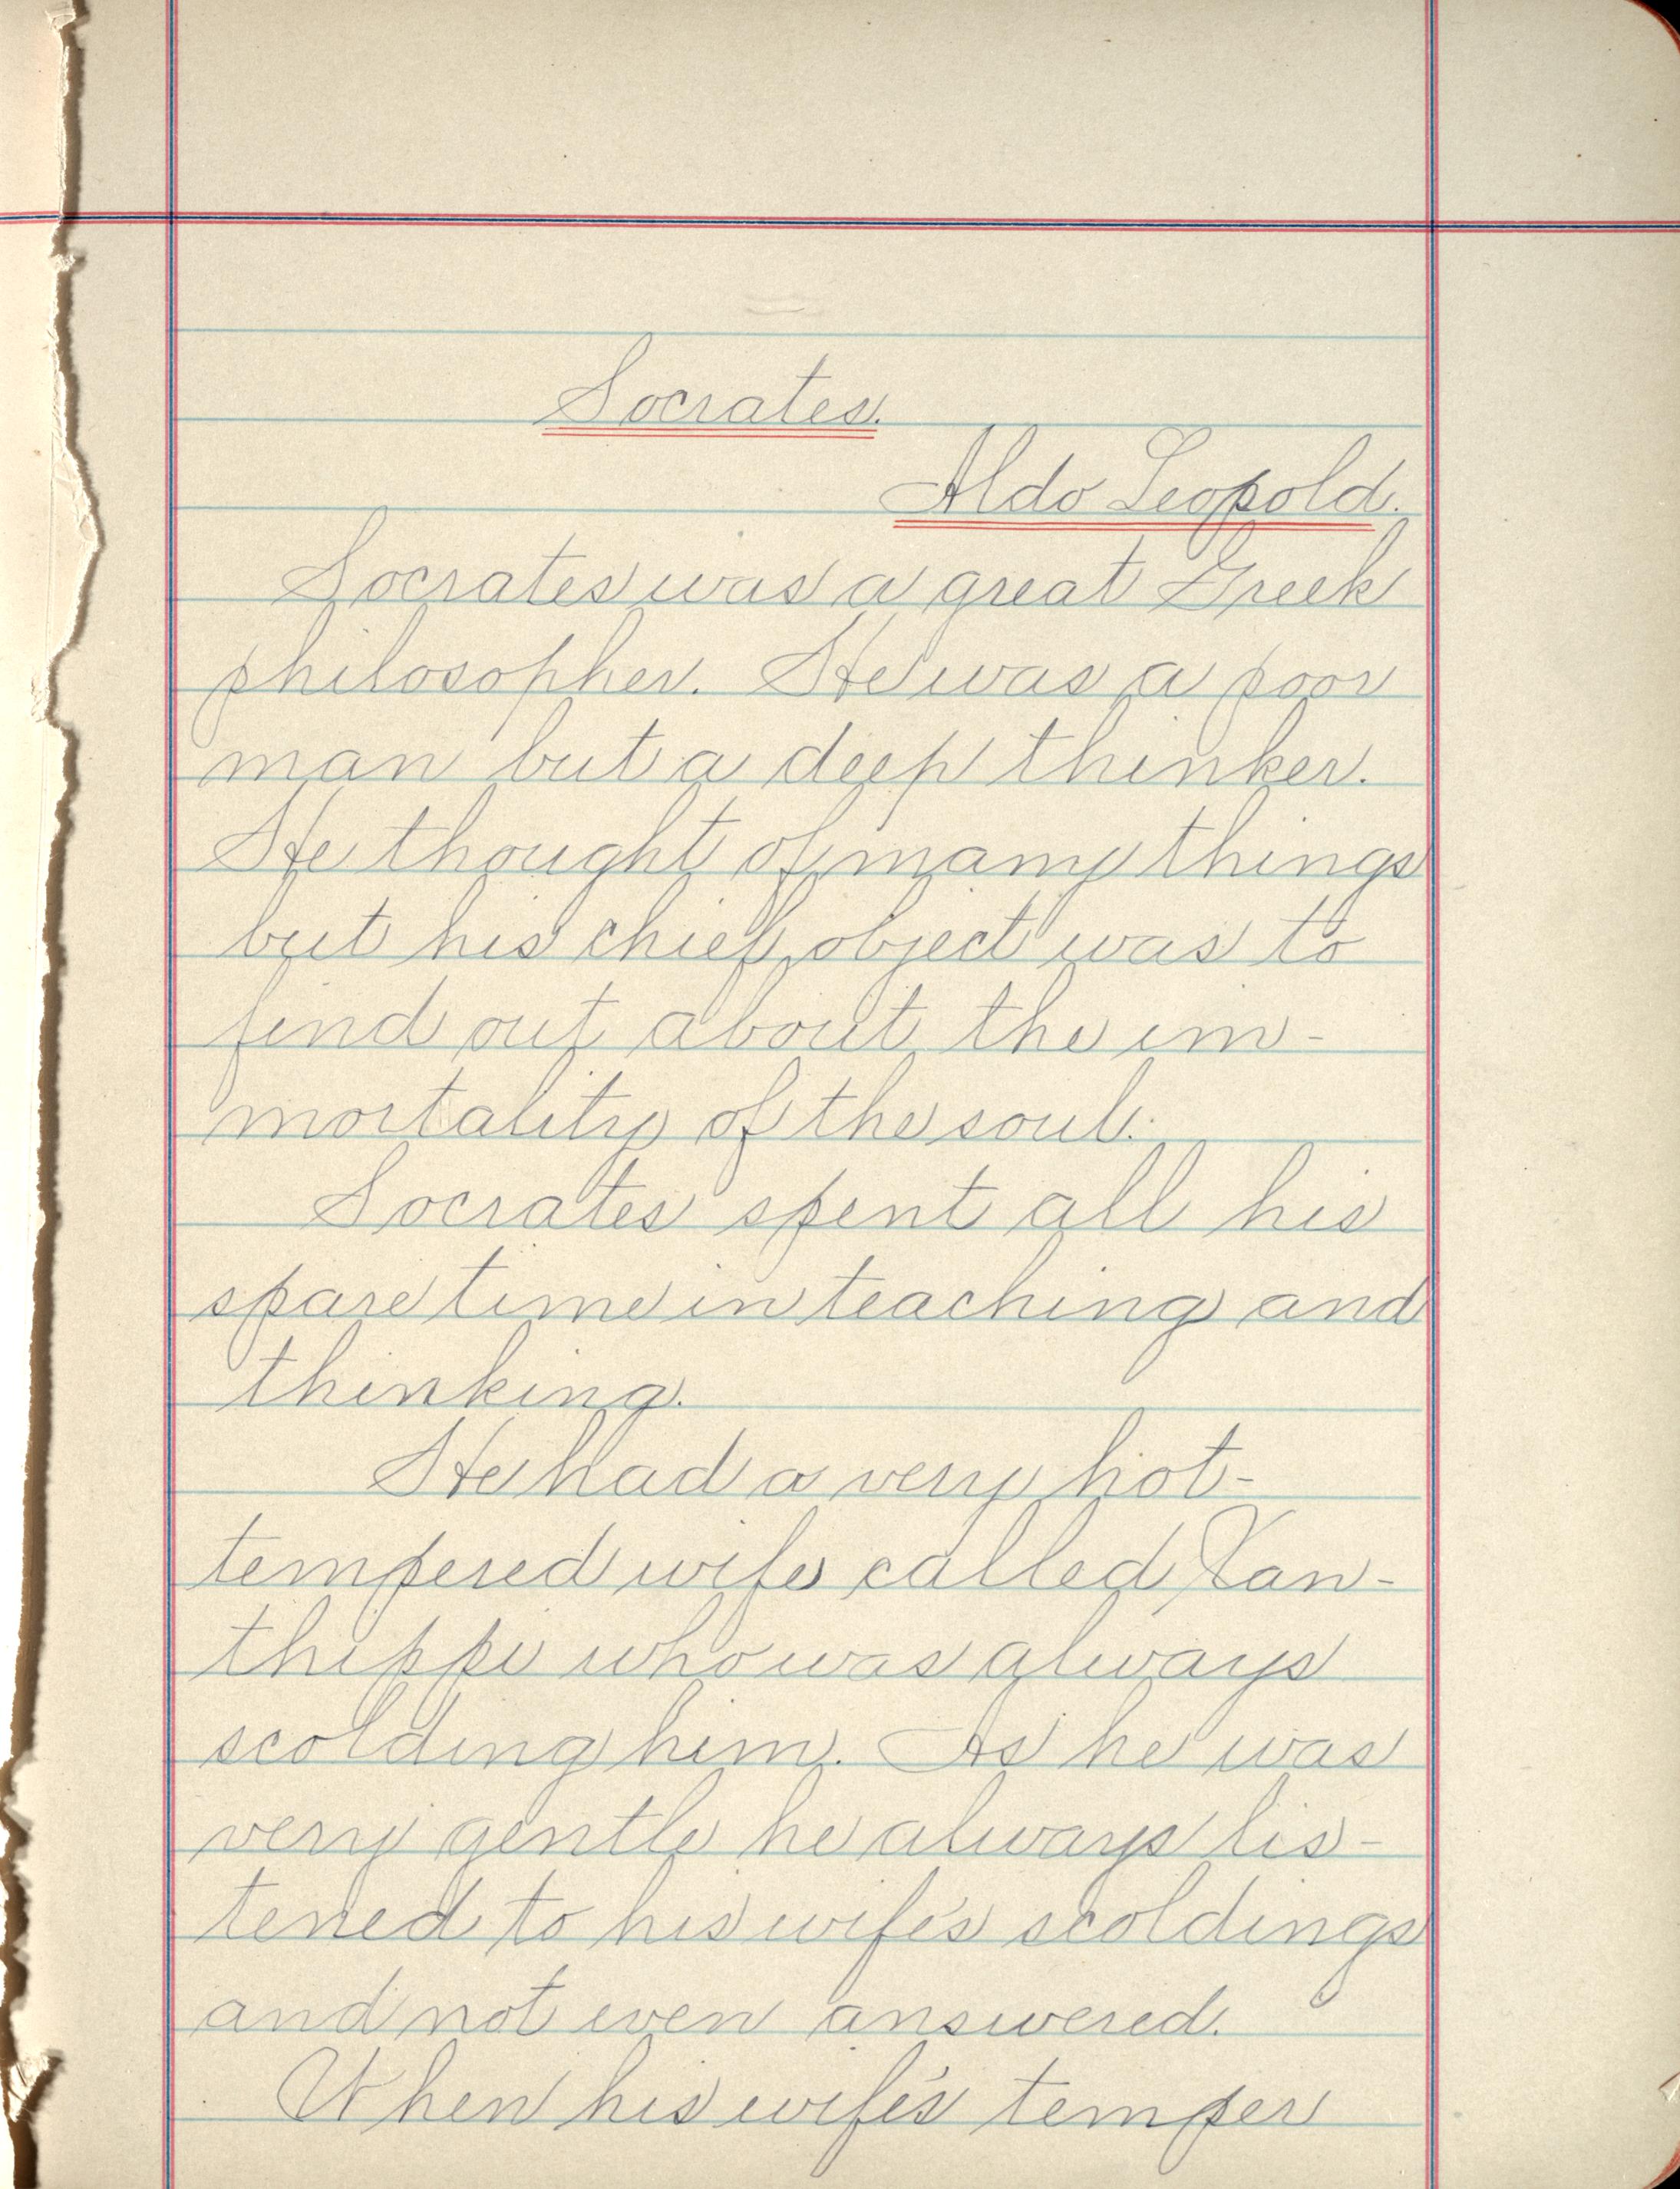 Socrates.
Aldo Leopold.
Socrates was a great Greek
philosopher. He was a poor
man but a deep thinker.
He thought of many things
but his chief object was to
find out about the im-
mortality of the soul.
Socrates spent all his
spare time in teaching and
thinking.
He had a very hot-
tempered wife called Xan-
thippe who was always
scolding him. As he was
very gentle he always lis-
tened to his wife's scoldings
and not even answered.
When his wife's temper